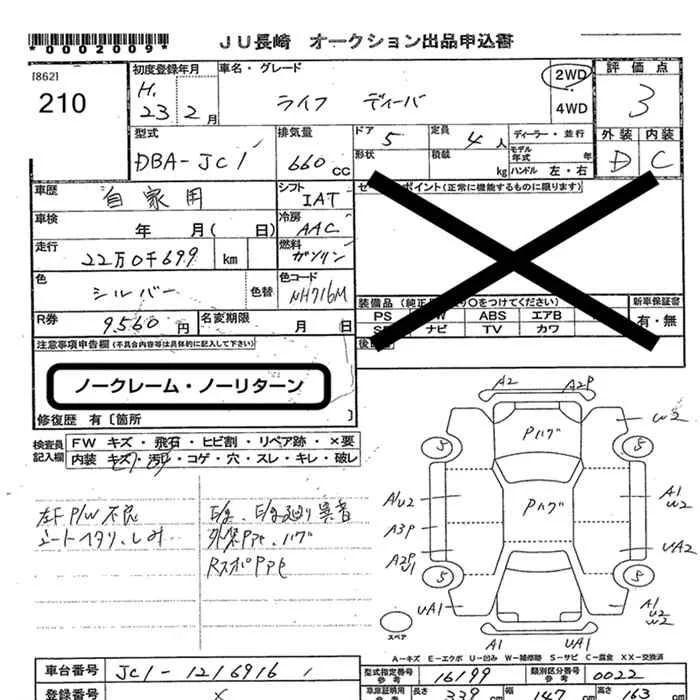 *0002009*
JU長崎 オークション出品申込書
[862]
210
初度登録年月
H.
23年 2月
車名・グレード
ライフ ディーバ
2WD
4WD
評価点
3
外装 内装
D C
型式
DBA-JC1
排気量
660 CC
ドア
5
定員
4人
ディーラー・並行
形状
積載
kg
モデル年式 年
ハンドル 左・右
車歴
自家用
シフト
IAT
車検
年 月( 日)
冷房
AAC
走行
22万0千699 km
燃料
ガソリン
色
シルバー
色替
色コード
NH716M
R券
9,560円
名変期限
月 日
ポイント(正常に機能するものに限ります)
装備品
○をつけてください)
新車保証書
有・無
PS
PW
ABS
エアB
ナビ
TV
カワ
注意事項申告欄(不具合内容等は具体的に記入して下さい)
ノークレーム・ノーリターン
修復歴 有〔箇所 〕
検査員記入欄
FW キズ・飛石・ヒビ割・リペア跡・×要
内装 キズ・汚レ・コゲ・穴・スレ・キレ・破レ
左F P/W 不良
シートヘタリ、しみ
A2
A2P
Pハゲ
Pハゲ
W2
5
5
A1U2
A3P
A1
W2
UA2
5
5
UA1
A1
U2
W2
スペア
A1
UA1
A-キズ E-エクボ U-凹み W-補修跡 S-サビ C-腐食 XX-交換済
車台番号
JC1-1216916
登録番号
型式指定番号
参考
16199
類別区分番号
参考
0022
長さ
339 cm
幅
147 cm
高さ
163 cm